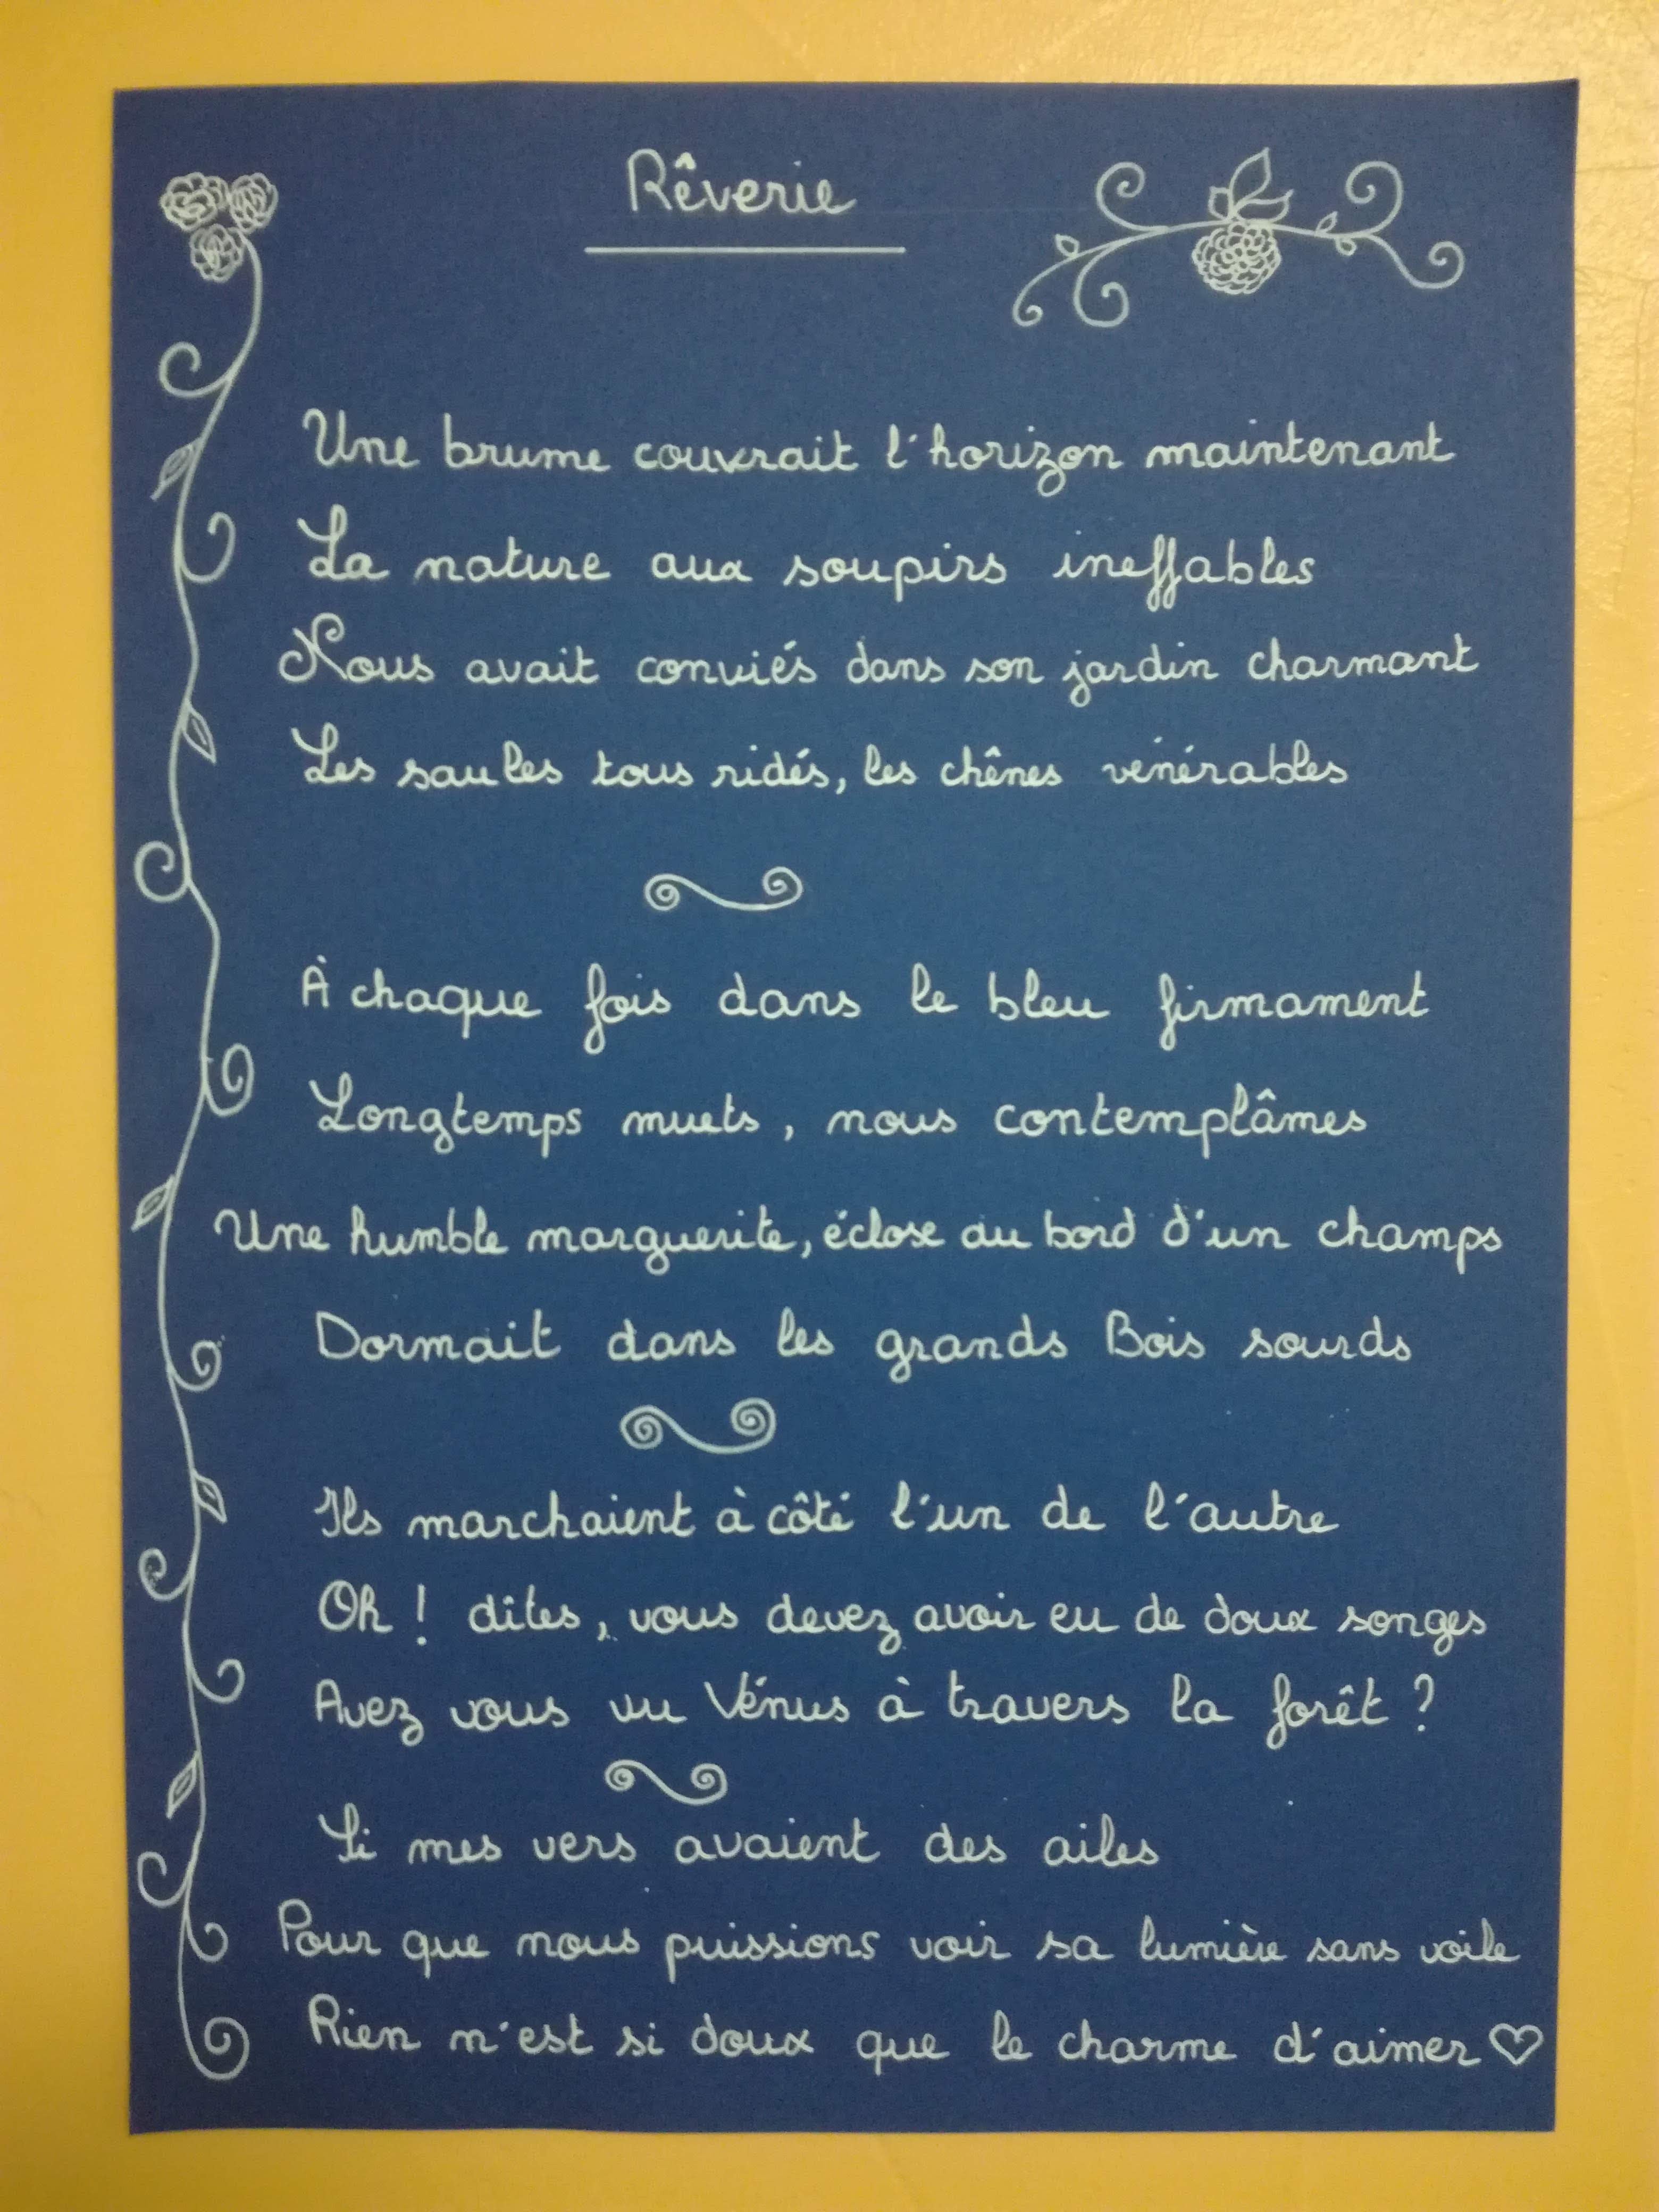 Rêverie
Une brume couvrait l'horizon maintenant
La nature aux soupirs ineffables
Nous avait conviés dans son jardin charmant
Les saules tous ridés, les chênes vénérables
À chaque fois dans le bleu firmament
Longtemps muets, nous contemplâmes
Une humble marguerite, éclose au bord d'un champs
Dormait dans les grands Bois sourds
Ils marchaient à côté l'un de l'autre
Oh ! dîtes, vous devez avoir eu de doux songes
Avez vous vu Vénus à travers la forêt ?
Si mes vers avaient des ailes
Pour que nous puissions voir sa lumière sans voile
Rien n'est si doux que le charme d'aimer ♡